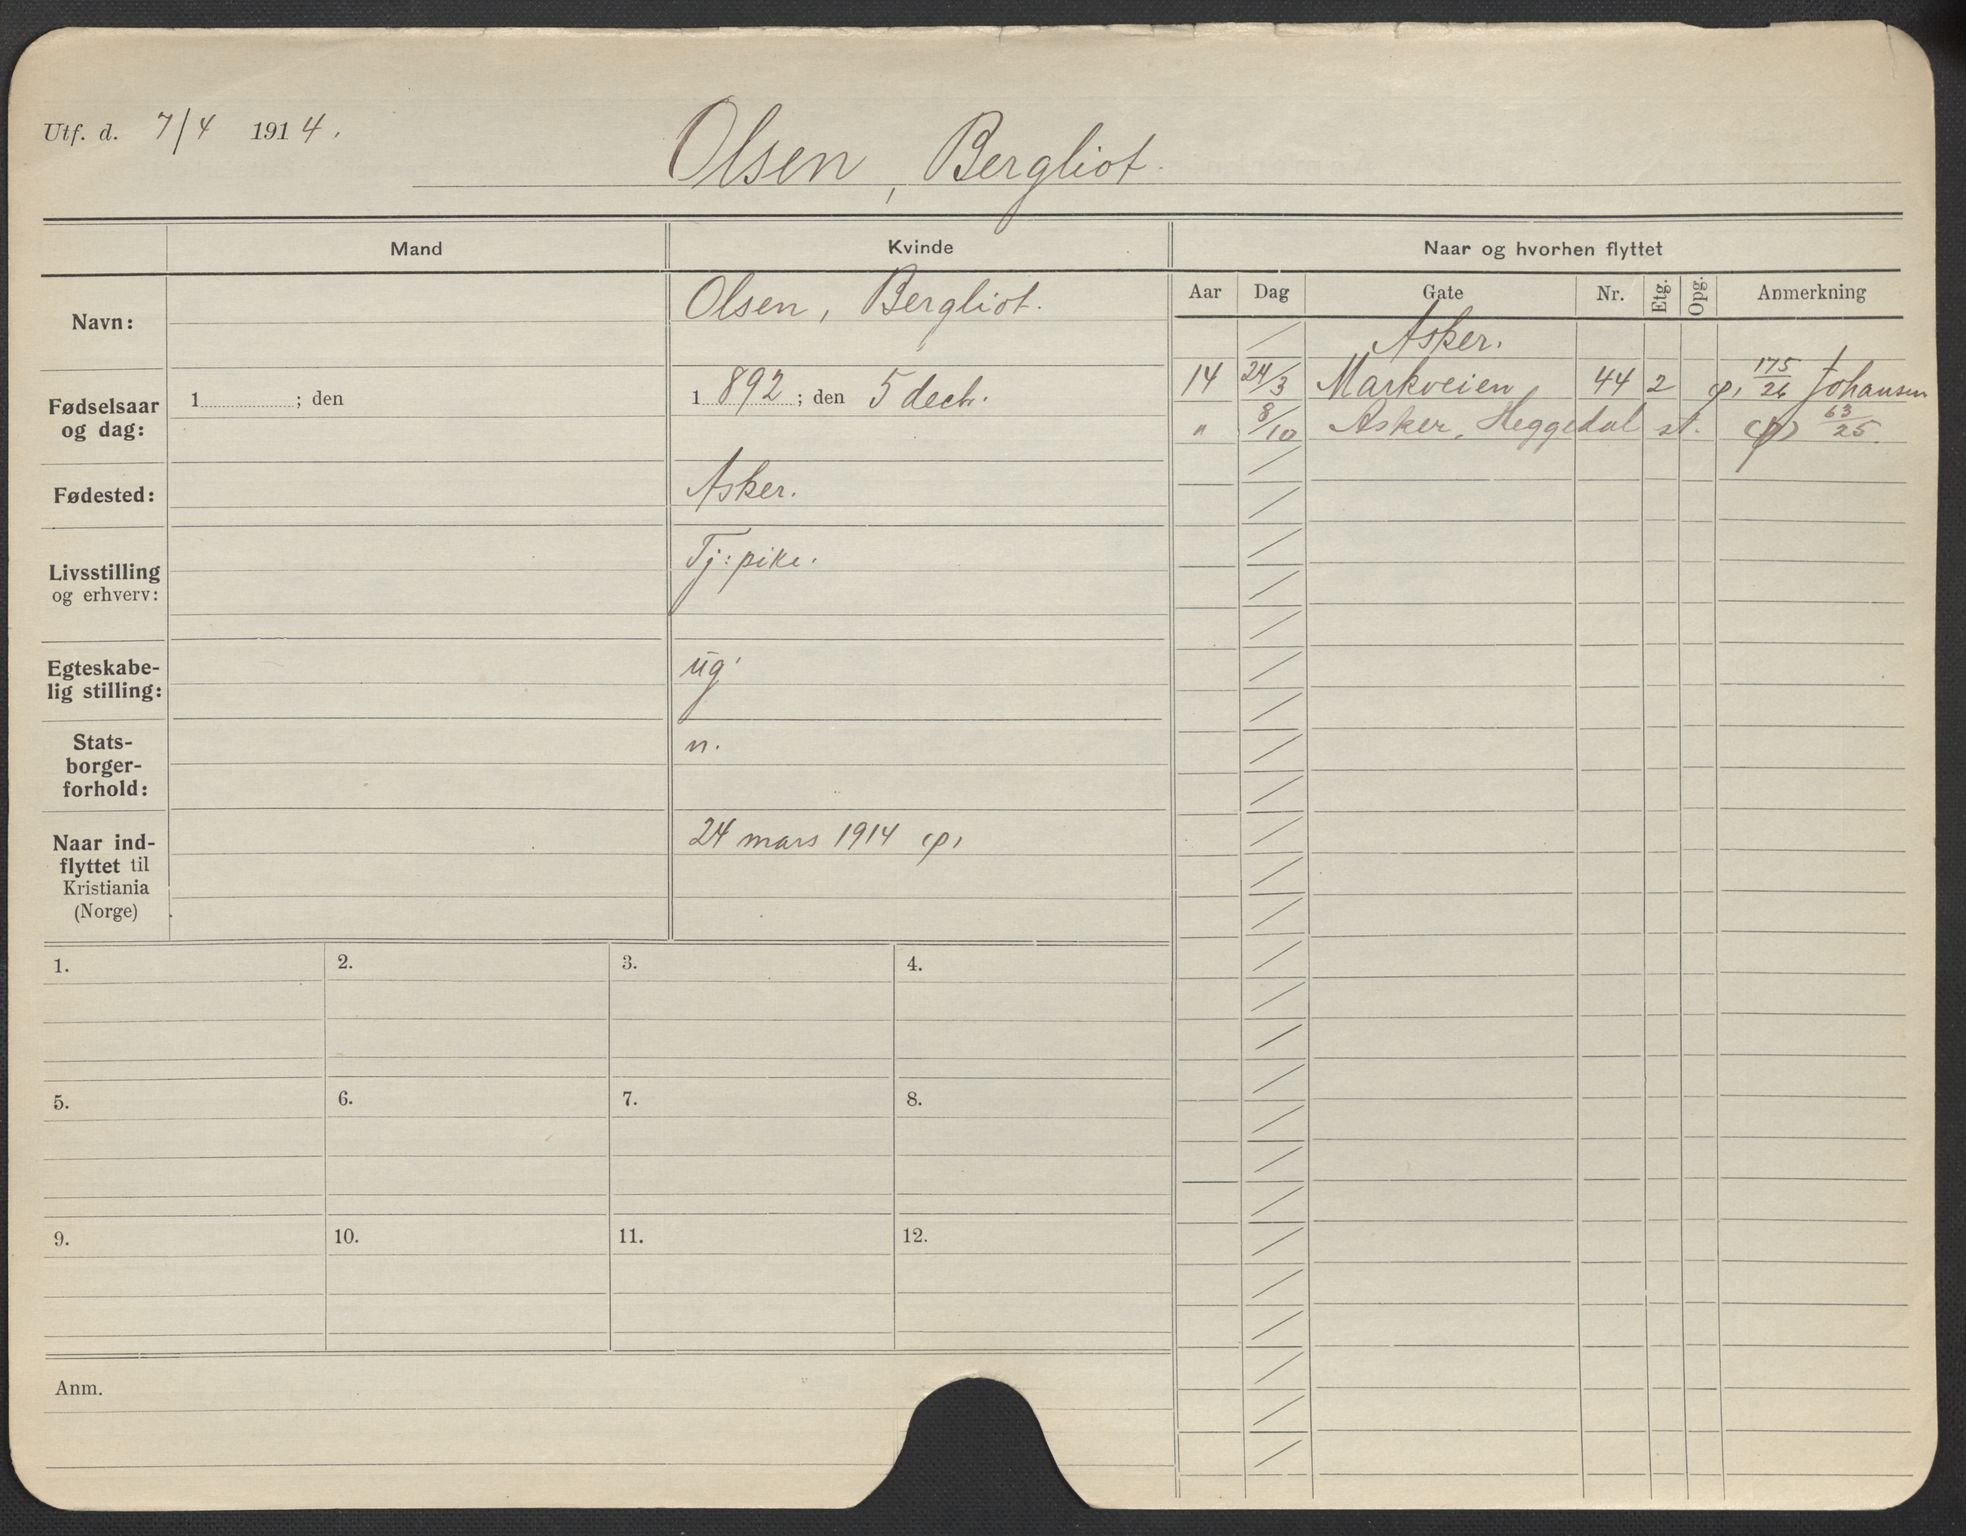 Utf. d. 7/4 1914.
Olsen, Bergliot.
Mand
Kvinde
Naar og hvorhen flyttet
Navn:
Olsen, Bergliot.
Fødselsaar og dag:
1 ; den
1 892 ; den 5 decbr.
Fødested:
Asker.
Livsstilling og erhverv:
Tj: pike.
Egteskabe-
lig stilling:
ug.
Stats-
borger-
forhold:
n.
Naar ind-
flyttet til
Kristiania
(Norge)
24 mars 1914 (p)
Aar Dag Gate Nr. Etg. Opg. Anmerkning
Asker.
14 24/3 Markveien 44 2 (p) 175/26 Johansen
" 8/10 Asker, Heggedal st. (p) 63/25.
1.
2.
3.
4.
5.
6.
7.
8.
9.
10.
11.
12.
Anm.